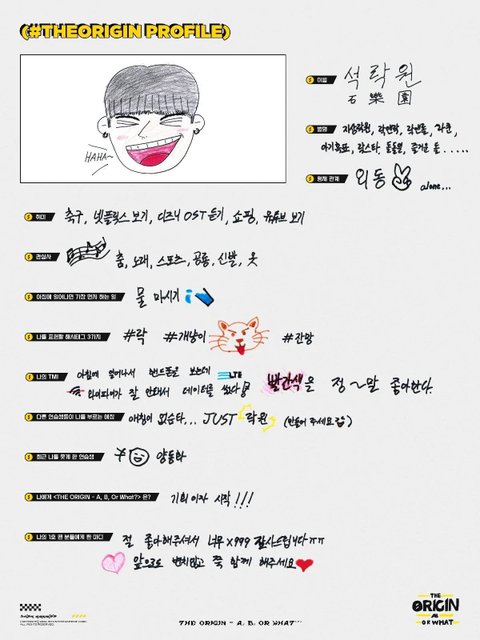 (#THEORIGIN PROFILE)
HAHA~
이름 석락원
石樂園
별명
아기호표, 락스타, 돌돌원, 즐거운 돌.....
형제 관계 외동 alone...
취미 축구, 넷플릭스 보기, 디즈니 OST 듣기, 쇼핑, 유튜브 보기
관심사 춤, 노래, 스포츠, 공룡, 신발, 옷
아침에 일어나면 가장 먼저 하는 일 물 마시기
나를 표현할 해시태그 3가지 #락 #개냥이 #잔망
나의 TMI 아침에 일어나서 핸드폰을 보는데 LTE
와이파이가 잘 안돼서 데이터를 썼다 빨간색을 정~말 좋아한다.
다른 연습생들이 나를 부르는 애칭 애칭이 없습다... JUST 락원 (만들어 주세요)
최근 나를 웃게 한 연습생 양동화
나에게 <THE ORIGIN - A, B, Or What?> 은? 기회이자 시작!!!
나의 1호 팬 분들에게 한 마디 절 좋아해주셔서 너무 x999 감사드립니다ㅠㅠ
앞으로도 변치않고 쭉 함께 해주세요
THE ORIGIN - A, B, OR WHAT?
THE ORIGIN A, B, OR WHAT?